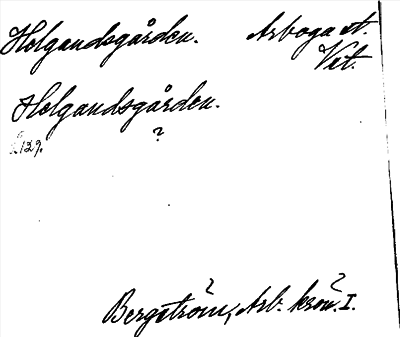 Helgandsgården. Arboga st.
Vstl.
Helgandsgården.
?
129.
Bergström, Arb. krön. I.